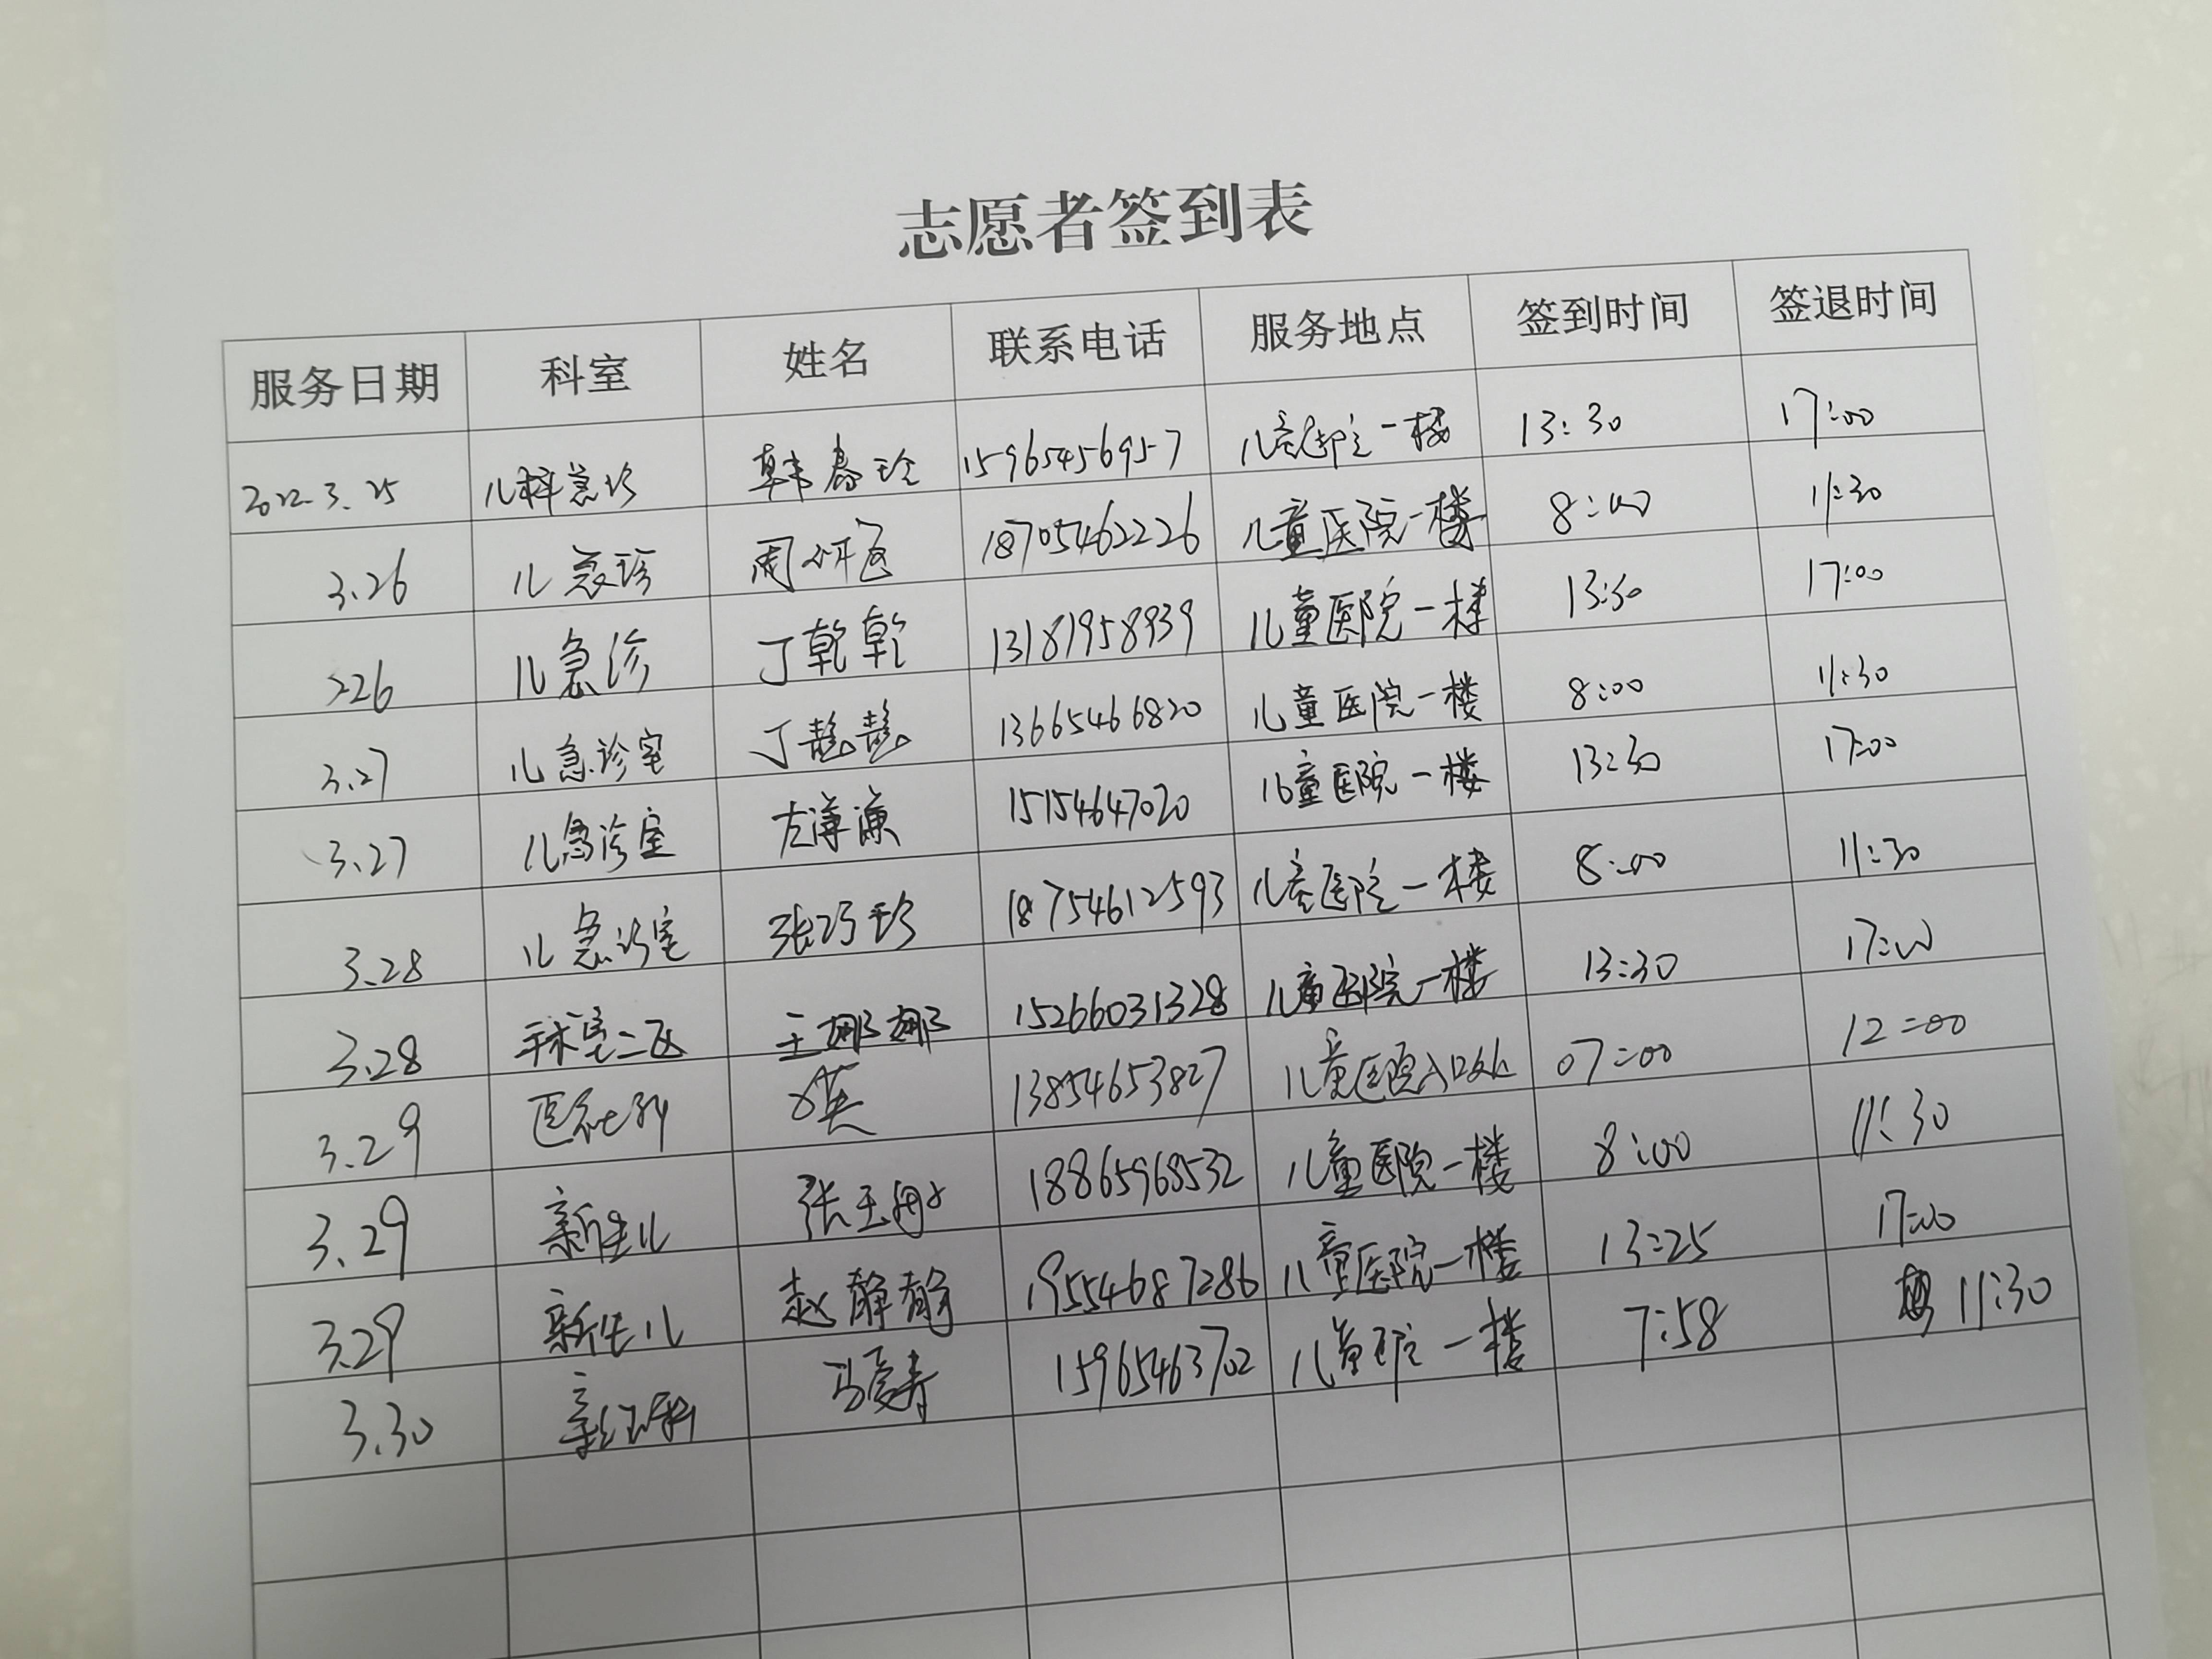 志愿者签到表
服务日期 科室 姓名 联系电话 服务地点 签到时间 签退时间
2022.3.25 儿科急诊 韩春玲 15965456957 儿童医院一楼 13:30 17:00
3.26 儿急诊 周 18705462226 儿童医院一楼 8:00 11:30
26 儿急诊 丁乾乾 13181958939 儿童医院一楼 13:30 17:00
3.27 儿急诊室 丁慧慧 13665466820 儿童医院一楼 8:00 11:30
3.27 儿急诊室 左 15154647020 儿童医院一楼 13:30 17:00
3.28 儿急诊室 张巧珍 18754612593 儿童医院一楼 8:00 11:30
3.28 手术室二区 王娜娜 15266031328 儿童医院一楼 13:30 17:00
3.29 13854653827 儿童医院入口处 07:00 12:00
3.29 新生儿 张玉 18865968532 儿童医院一楼 8:00 11:30
3.29 新生儿 赵静静 19554687286 儿童医院一楼 13:25 17:00
3.30 马爱青 15965463702 儿童医院一楼 7:58 11:30